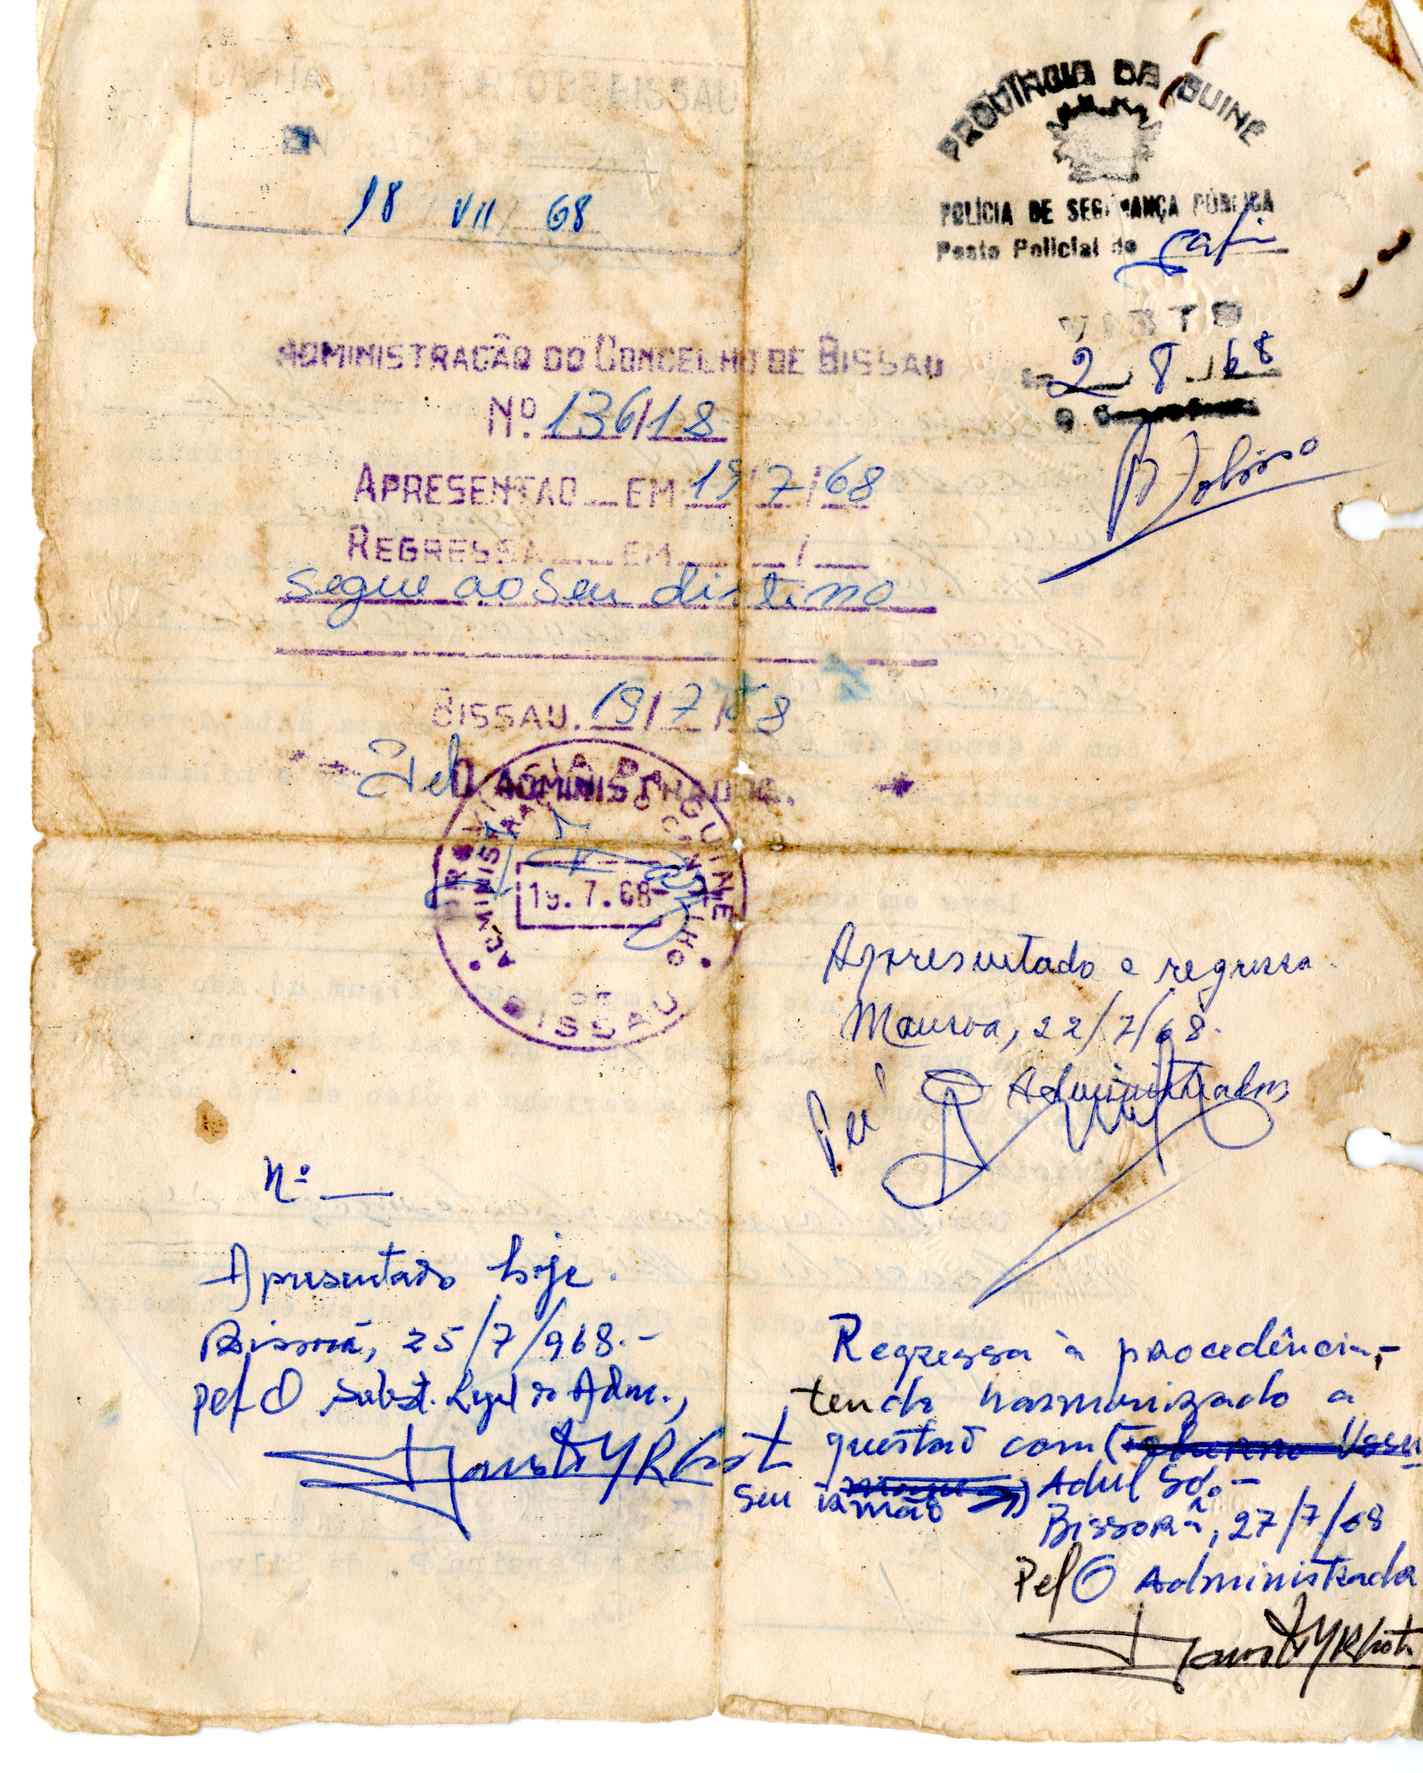 BISSAU
18 VII 68
PROVÍNCIA DA GUINÉ
POLÍCIA DE SEGURANÇA PÚBLICA
Posto Policial de
VISTO
2 8 68
O
ADMINISTRAÇÃO DO CONCELHO DE BISSAU
Nº. 136/18
APRESENTAD__EM 19/7/68
REGRESSA___EM___/__
Segue ao seu distino
BISSAU. 19/7/68
Pel O ADMINISTRADOR.
PROVÍNCIA DA GUINÉ
ADMINISTRAÇÃO DO CONCELHO
19.7.68
DE
BISSAU
Apresentado e regressa.
Mansoa, 22/7/68.
Pel' O Administrador,
Nº __
Apresentado hoje.
Bissorã, 25/7/968.-
Pel O Subst. Legal do Adm.,
Regressa à procedência,-
tendo harmonizado a
questão com (
seu irmão ) Adul Só.-
Bissorã, 27/7/68
Pel O Administrador